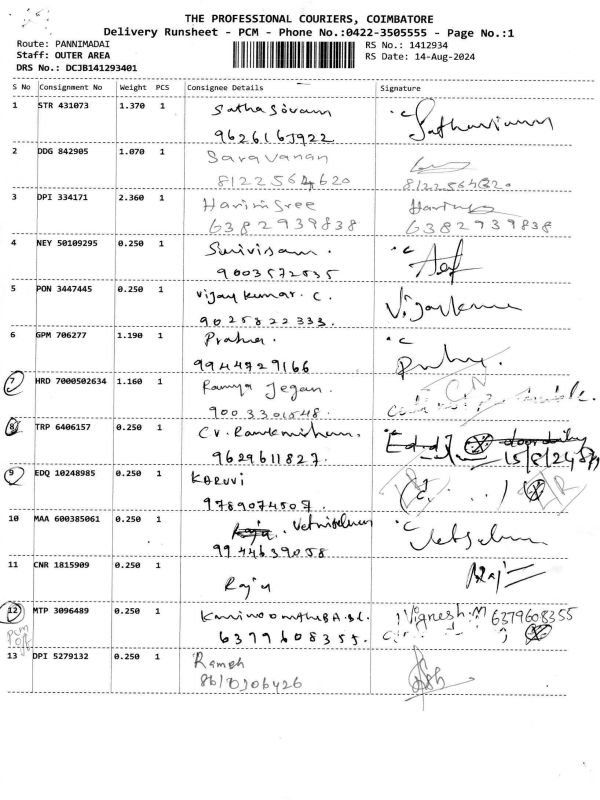 THE PROFESSIONAL COURIERS, COIMBATORE
Delivery Runsheet - PCM - Phone No.:0422-3505555 - Page No.:1
Route: PANNIMADAI RS No.: 1412934
Staff: OUTER AREA RS Date: 14-Aug-2024
DRS No.: DCJB141293401
S No Consignment No Weight PCS Consignee Details Signature
1 STR 431073 1.370 1 Sathasivam
2 DDG 842905 1.070 1 Saravanan
8122564620
3 DPI 334171 2.360 1 Harinisree
6382939838 6382939838
4 NEY 50109295 0.250 1
9003572535
5 PON 3447445 0.250 1 Vijay kumar. C. Vijaykumar
9025822333.
6 GPM 706277 1.190 1
9944729166
7 HRD 7000502634 1.160 1 Ramya Jegan.
9003301548.
8 TRP 6406157 0.250 1 C.V. Ramkrishnan.
9629611827. 15/8/24
9 EDQ 10248985 0.250 1 KARUVI
9789074507.
10 MAA 600385061 0.250 1 Vetriselvan
9944639058
11 CNR 1815909 0.250 1 Raju
12 MTP 3096489 0.250 1 Vignesh.M 6379608355
6379608355.
13 DPI 5279132 0.250 1 Ramesh